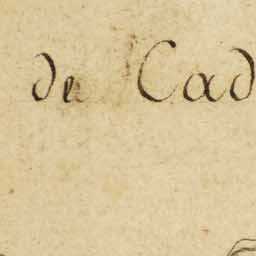 de Cad